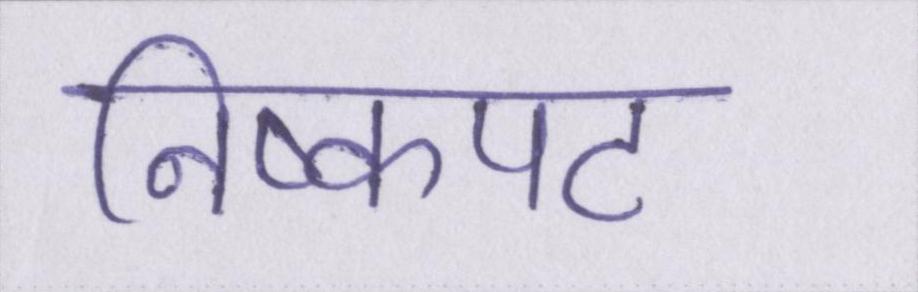 निष्कपट